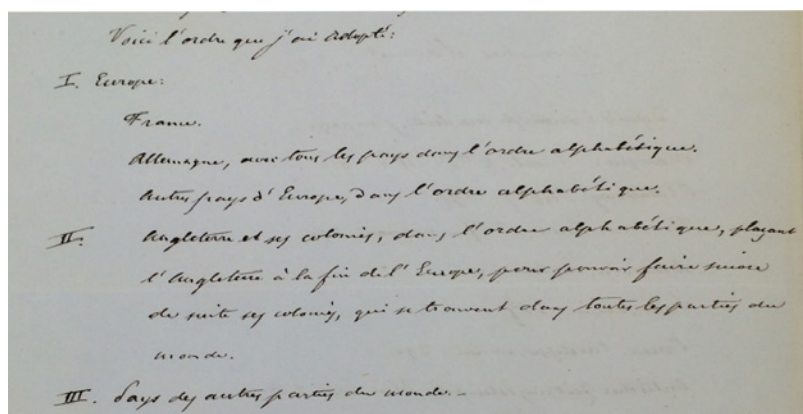 Voici l'ordre que j'ai adopté:
I. Europe:
France.
Allemagne, avec tous les pays dans l'ordre alphabétique.
Autres pays d'Europe, dans l'ordre alphabétique.
II. Angleterre et ses colonies, dans l'ordre alphabétique, plaçant
l'Angleterre à la fin de l'Europe, pour pouvoir faire suivre
de suite ses colonies, qui se trouvent dans toutes les parties du
monde.
III. Pays des autres parties du monde.-